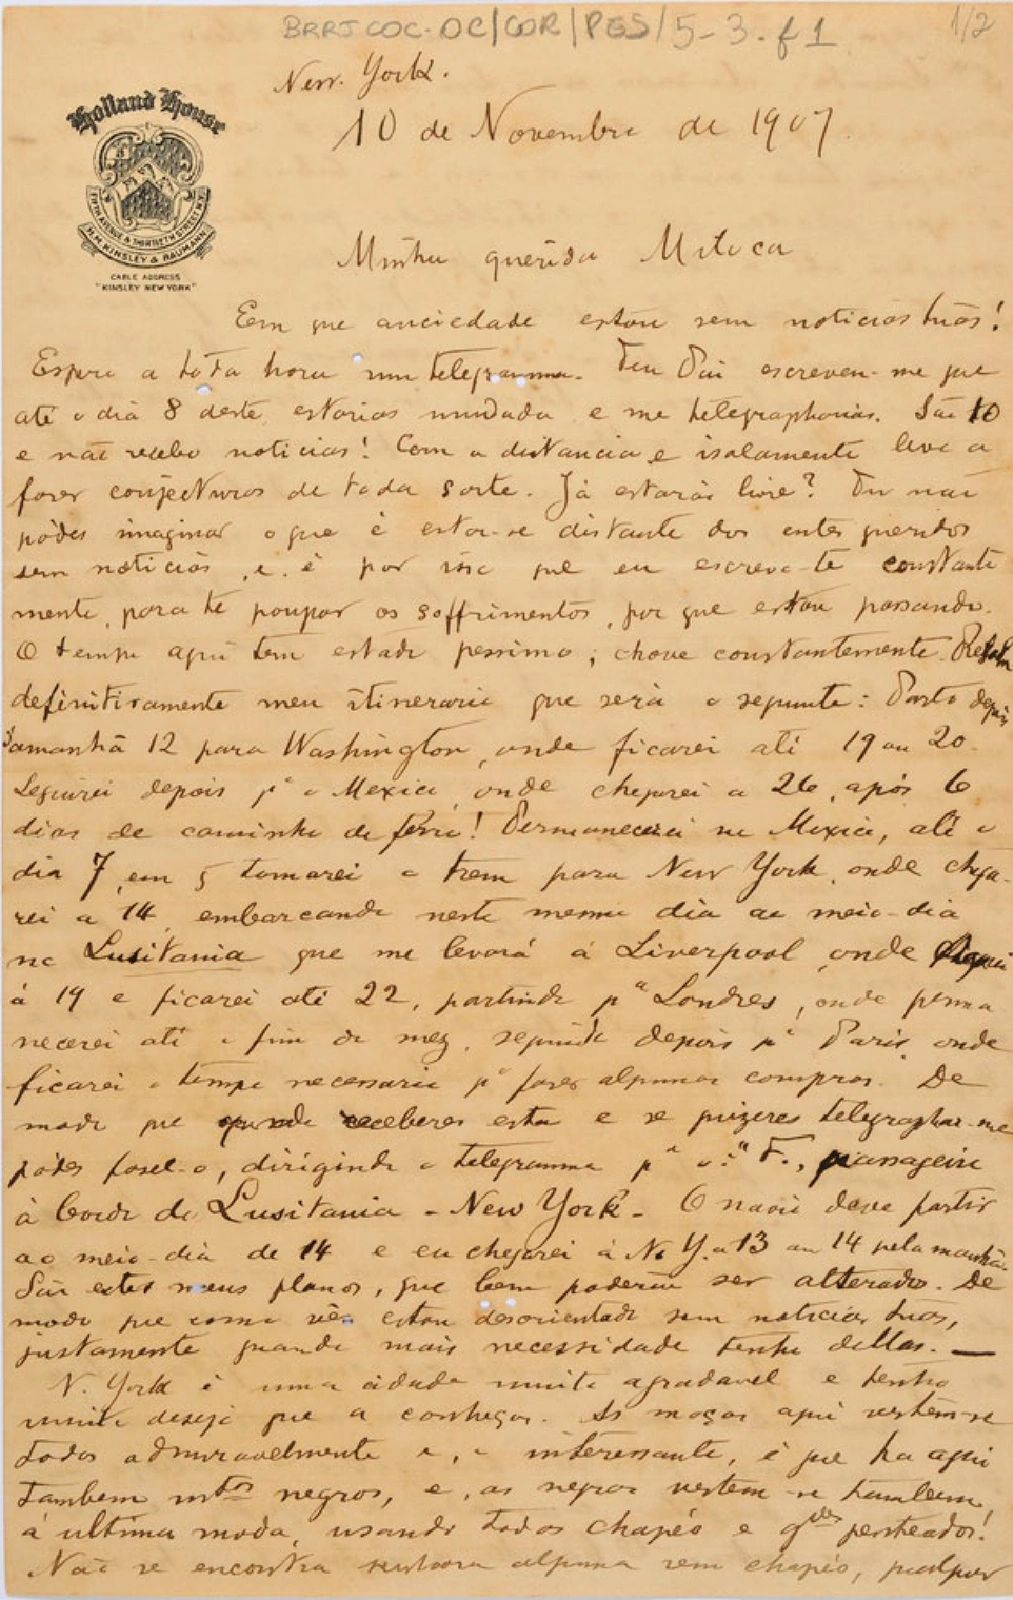 BRRJCOC-OC/COR/PES/5-3.f1
1/2
New. York.
10 de Novembro de 1907
Holland House
FIFTH AVENUE & THIRTIETH STREET N.Y.
H.M. KINSLEY & BAUMANN
CABLE ADDRESS
"KINSLEY NEW YORK"
Minha querida Miloca
Em que anciedade estou sem noticias tuas!
Espero a toda hora um telegramma. Teu Pai escreveu-me que
até o dia 8 deste estarias mudada e me telegrapharias. São 10
e não recebo noticias! Com a distancia e isolamento levo a
fazer conjecturas de toda sorte. Já estarás livre? Tu não
pódes imaginar o que é estar-se distante dos entes queridos
sem noticias, e é por isso que eu escrevo-te constante
mente, para te poupar os soffrimentos, por que estou passando.
O tempo aqui tem estado pessimo; chove constantemente.
definitivamente meu itinerario que será o seguinte: Parto depois
d'amanhã 12 para Washington, onde ficarei até 19 ou 20.
Seguirei depois pª o Mexico, onde chegarei a 26, após 6
dias de caminho de ferro! Permanecerei no Mexico, até o
dia 7, em q tomarei o trem para New York, onde chega-
rei a 14 embarcando neste mesmo dia ao meio-dia
no Lusitania que me levará á Liverpool, onde
á 19 e ficarei até 22, partindo pª Londres, onde perma
necerei até o fim do mez, seguindo depois pª Paris, onde
ficarei o tempo necessario pª fazer algumas compras. De
modo que quando receberes esta e se quizeres telegraphar-me
pódes fasel-o, dirigindo o telegramma pª F., passageiro
á bordo do Lusitania - New York - O navio deve partir
ao meio-dia de 14 e eu chegarei á N. Y. a 13 ou 14 pela manhã.
São estes meus planos, que bem poderão ser alterados. De
modo que como vês estou desorientado sem noticias tuas,
justamente quando mais necessidade tenho dellas. —
N. York é uma cidade muito agradavel e tenho
muito desejo que a conheças. As moças aqui vestem-se
todas admiravelmente e, o interessante, é que ha aqui
tambem mtos negros, e, as negras vestem-se tambem
á ultima moda, usando todas chapéo e gdes penteados!
Não se encontra senhora alguma sem chapéo, qualquer